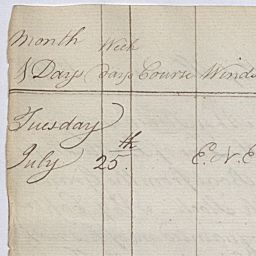 Month Week
& Days days Course Winds
Tuesday
July 25th. E.N.E